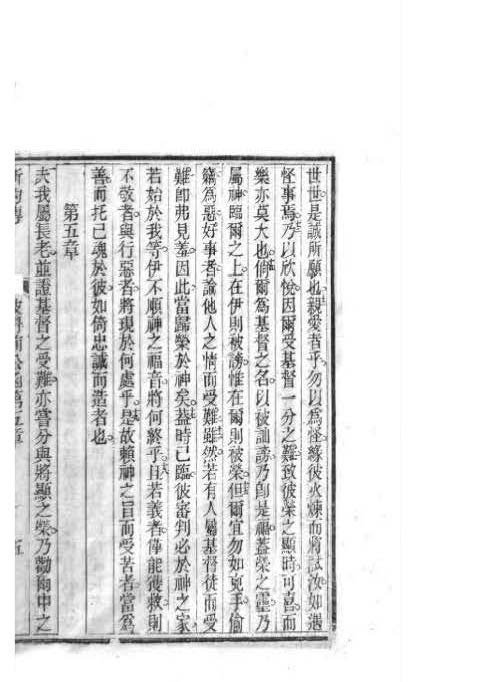 世世是誠所願也親愛者乎勿以為怪緣彼火煉而將試汝如遇
怪事焉乃以欣悅因爾受基督一分之難致彼榮之顯時可喜而
樂亦莫大也倘爾為基督之名以被訕謗乃卽是福蓋榮之靈乃
屬神臨爾之上在伊則被謗惟在爾則被榮但爾宜勿如兇手偷
竊為惡好事者諭他人之情而受難雖然若有人屬基督徒而受
難卽弗見羞因此當歸榮於神矣蓋時已臨彼審判必於神之家
若始於我等伊不順神之福音將何終乎且若義者僅能獲救則
不敬者與行惡者將現於何處乎是故賴神之旨而受苦者當為
善而托己魂於彼如倚忠誠而造者也
第五章
夫我屬長老並證基督之受難亦嘗分與將顯之榮乃勸向中之
五